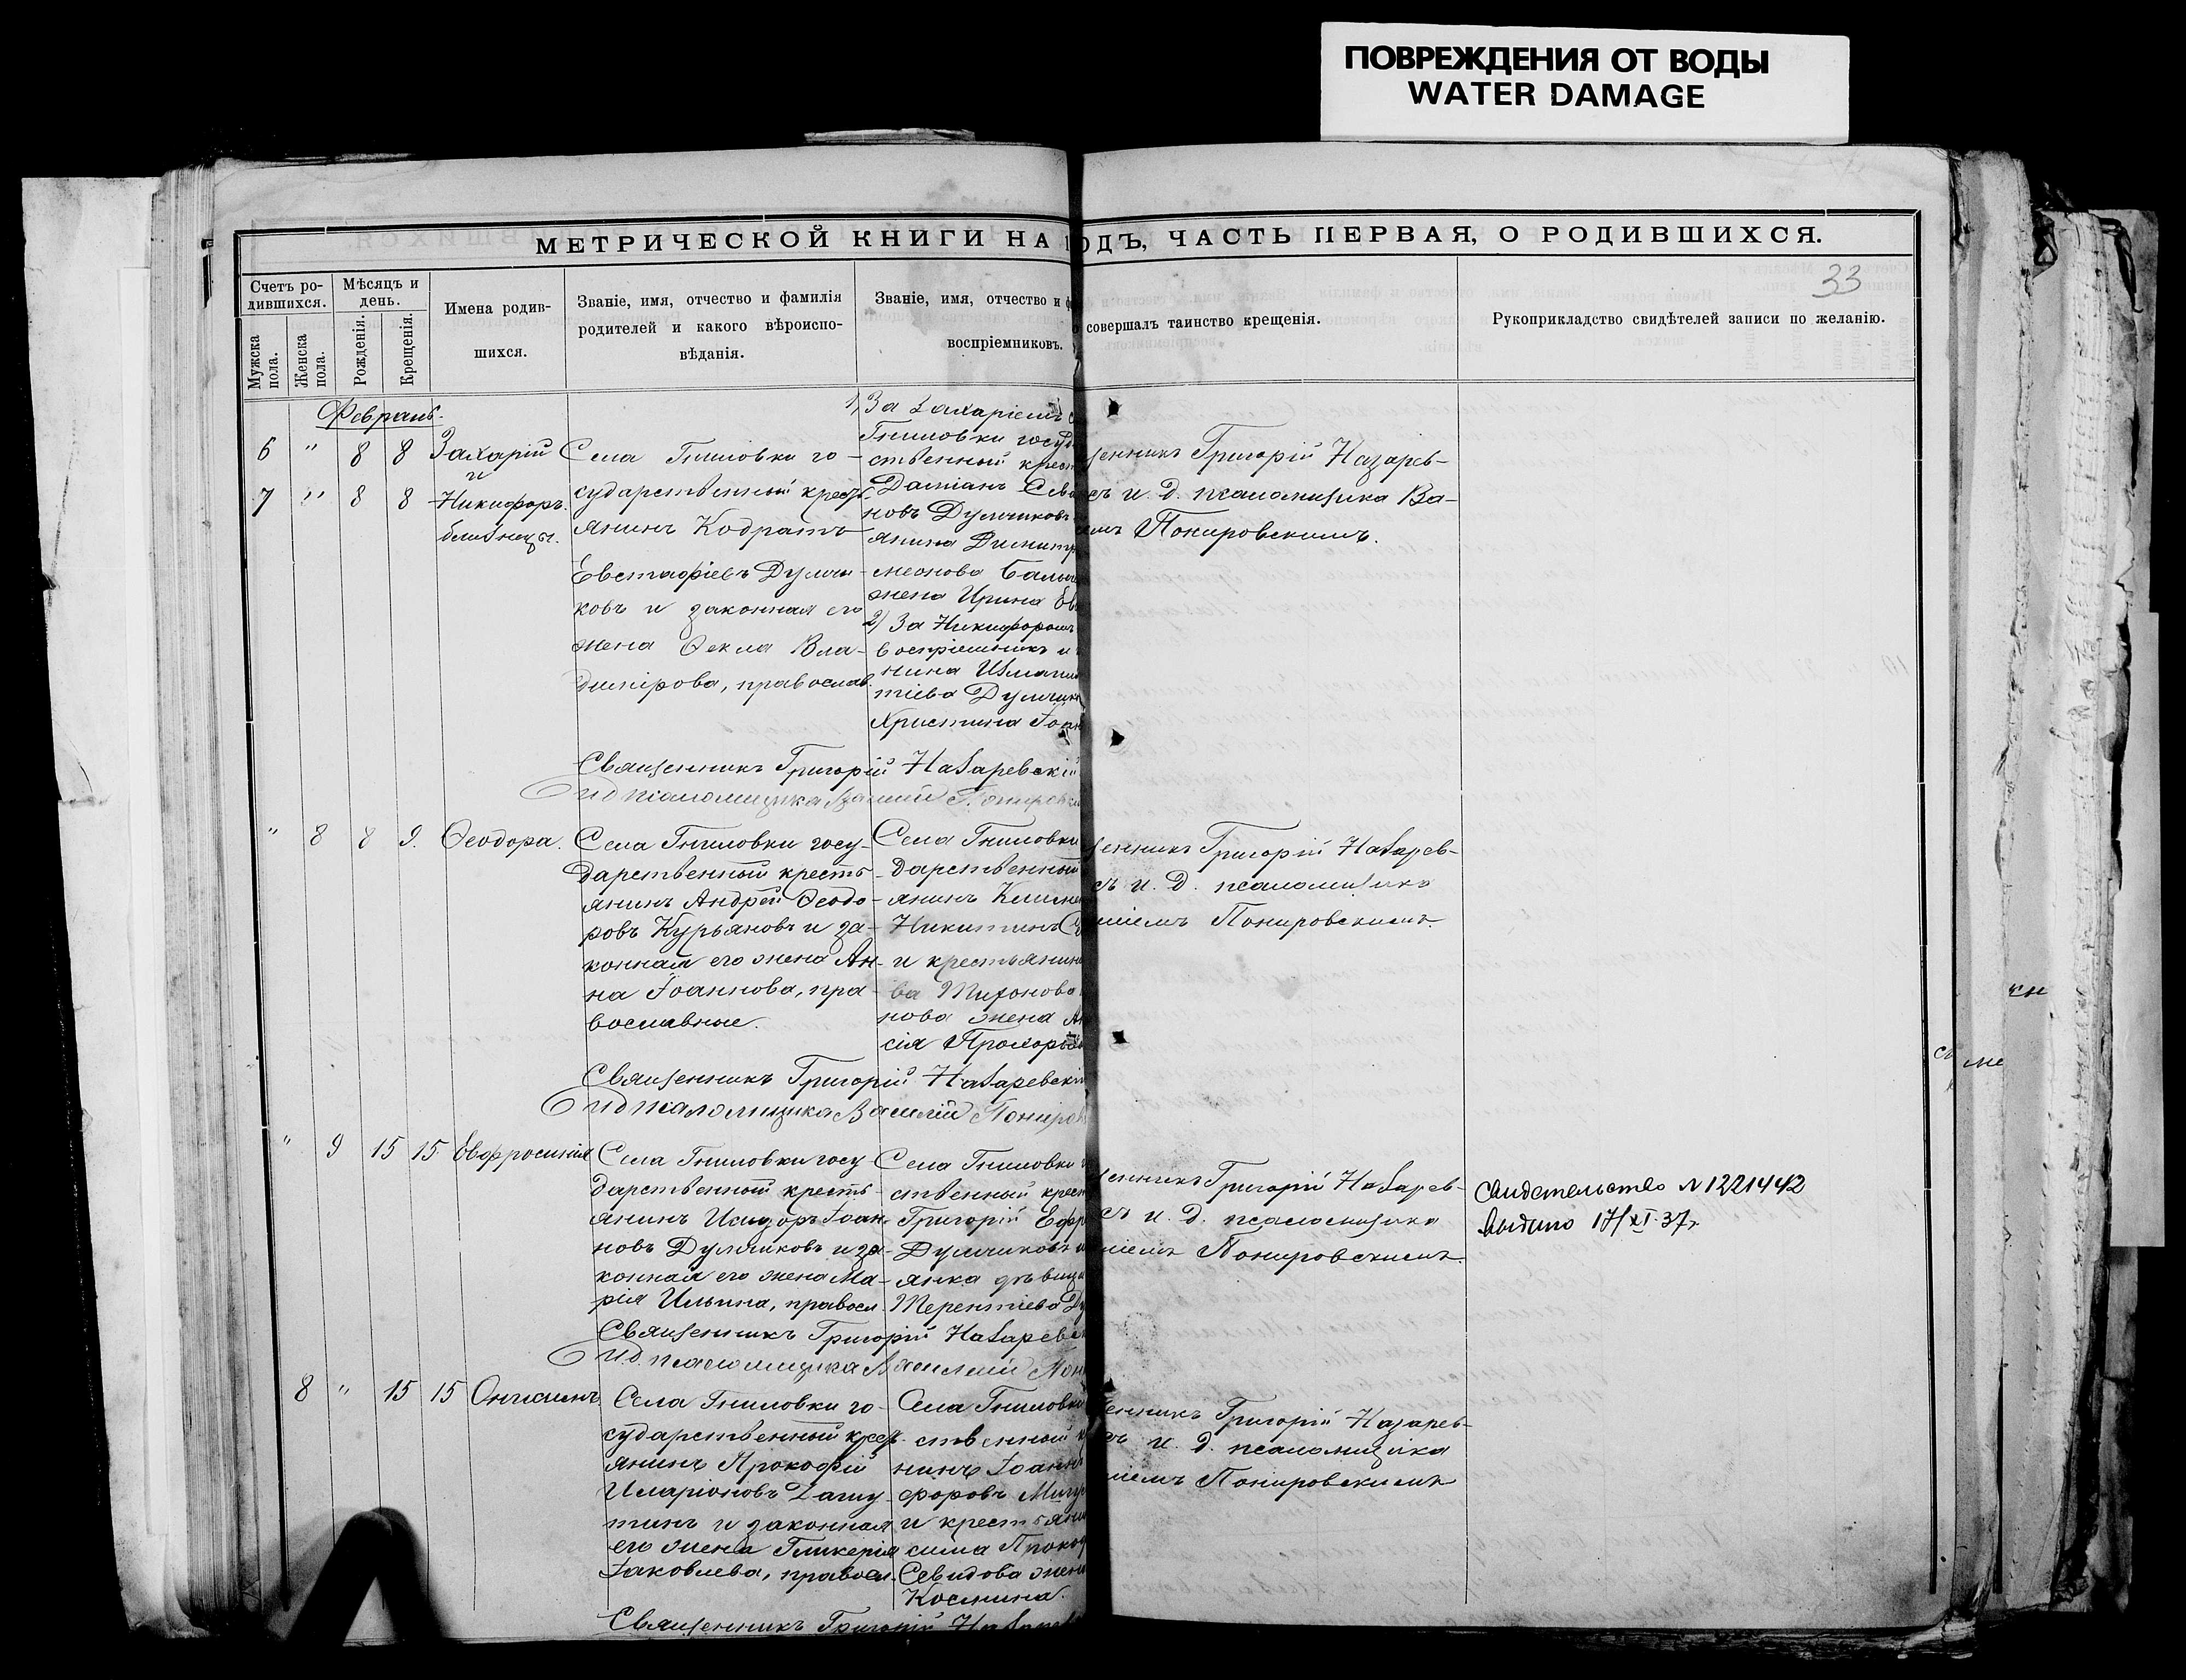 ПОВРЕЖДЕНИЯ ОТ ВОДЫ
WATER DAMAGE
МЕТРИЧЕСКОЙ КНИГИ НА ОДЪ, ЧАСТЬ ПЕРВАЯ, О РОДИВШИХСЯ.
33
Счетъ ро-
дившихся.
Мужска
пола.
Женска
пола.
Мѣсяцъ и
день.
Рожденія.
Крещенія.
Имена родив-
шихся.
Званіе, имя, отчество и фамилія
родителей и какого вѣроиспо-
вѣданія.
Званіе, имя, отчество и
воспріемниковъ.
совершалъ таинство крещенія.
Рукоприкладство свидѣтелей записи по желанію.
Февраль.
6 " 8 8 Захарій
и
7 " 8 8 Никифоръ.
близнецы.
Села Гниловки го-
сударственный кресть-
янинъ Кодратъ
Евстафіевъ Думчи-
ковъ и законная его
жена Ѳекла Вла-
димірова, православ.
1, За Захаріемъ
Гниловки госу
ственный крест
Даміанъ
новъ Думчиковъ
янина Димитр
меонова
жена Ирина
2) За Никифоромъ
воспріемникъ и
нина
тіева Думчик
Христина Іоан
енникъ Григорій Назарев-
съ и. д. псаломщика Ва-
емъ Понировскимъ.
Священникъ Григорій Назаревскій
И д псаломщика Василій Понировск
" 8 8 9. Ѳеодора.
Села Гниловки госу-
дарственный кресть-
янинъ Андрей Ѳеодо-
ровъ Курьяновъ и за-
конная его жена Ан-
на Іоаннова, пра-
вославные.
Села Гниловки
дарственный
янинъ
Никитинъ
и крестьянин
ва Тихонова
нова жена
сія Прохоро
енникъ Григорій Назарев-
съ и. д. псаломщика
иліемъ Понировскимъ.
Священникъ Григорій Назаревскій
И д псаломщика Василій Пониров
" 9 15 15 Евфросинія
Села Гниловки госу-
дарственный кресть-
янинъ Исидоръ Іоан-
новъ Думчиковъ и за-
конная его жена Ма-
рія Ильина, правосл.
Села Гниловки
ственный крест
Григорій Ефр
Думчиковъ и
янка дѣвица
Терентіева Ду
енникъ Григорій Назарев-
съ и. д. псаломщика
ліемъ Понировскимъ.
Свидетельство № 1221442
выдано 17/XI 37г.
Священникъ Григорій Назаревс
И д. псаломщика Василій Пон
8 " 15 15 Онисимъ
Села Гниловки го-
сударственный кресть-
янинъ Прокофій
Иларіоновъ Лагу-
тинъ и законная
его жена Гликерія
Іаковлева, правосл.
Села Гниловки
ственный к
нинъ Іоаннъ
форовъ
и крестьяни
сима Прокоф
Севидова жена
Космина.
енникъ Григорій Назарев-
съ и. д. псаломщика
иліемъ Понировскимъ
Священникъ Григорій Назарев